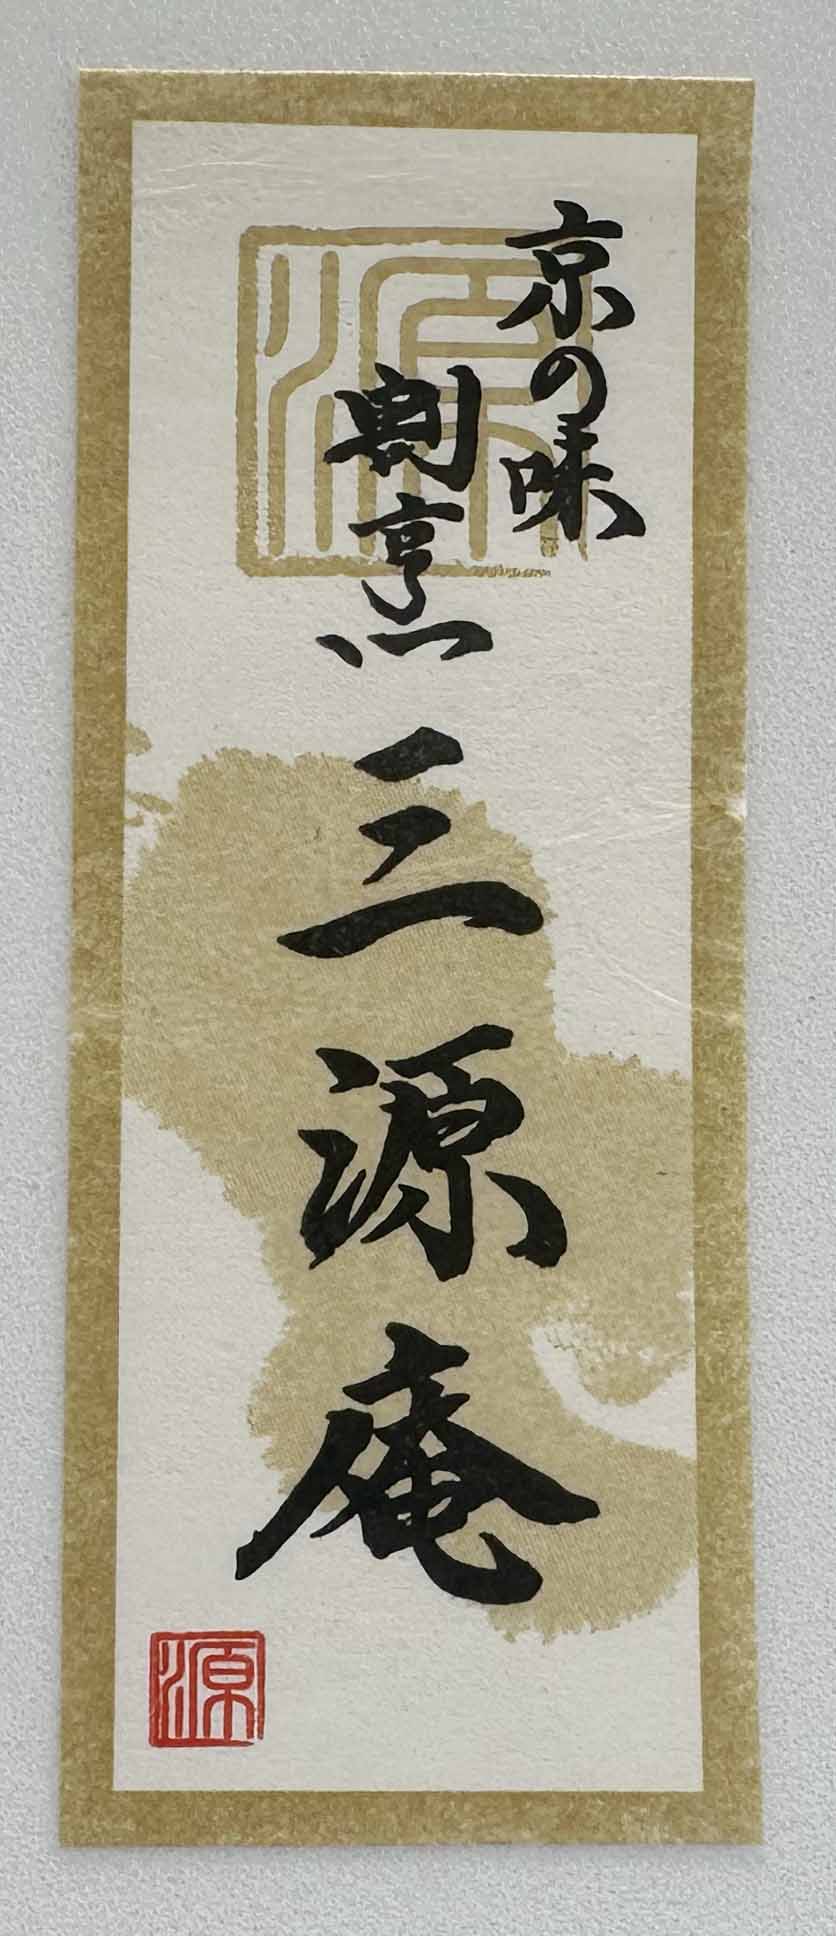 京の味
割烹
三源庵
源
源